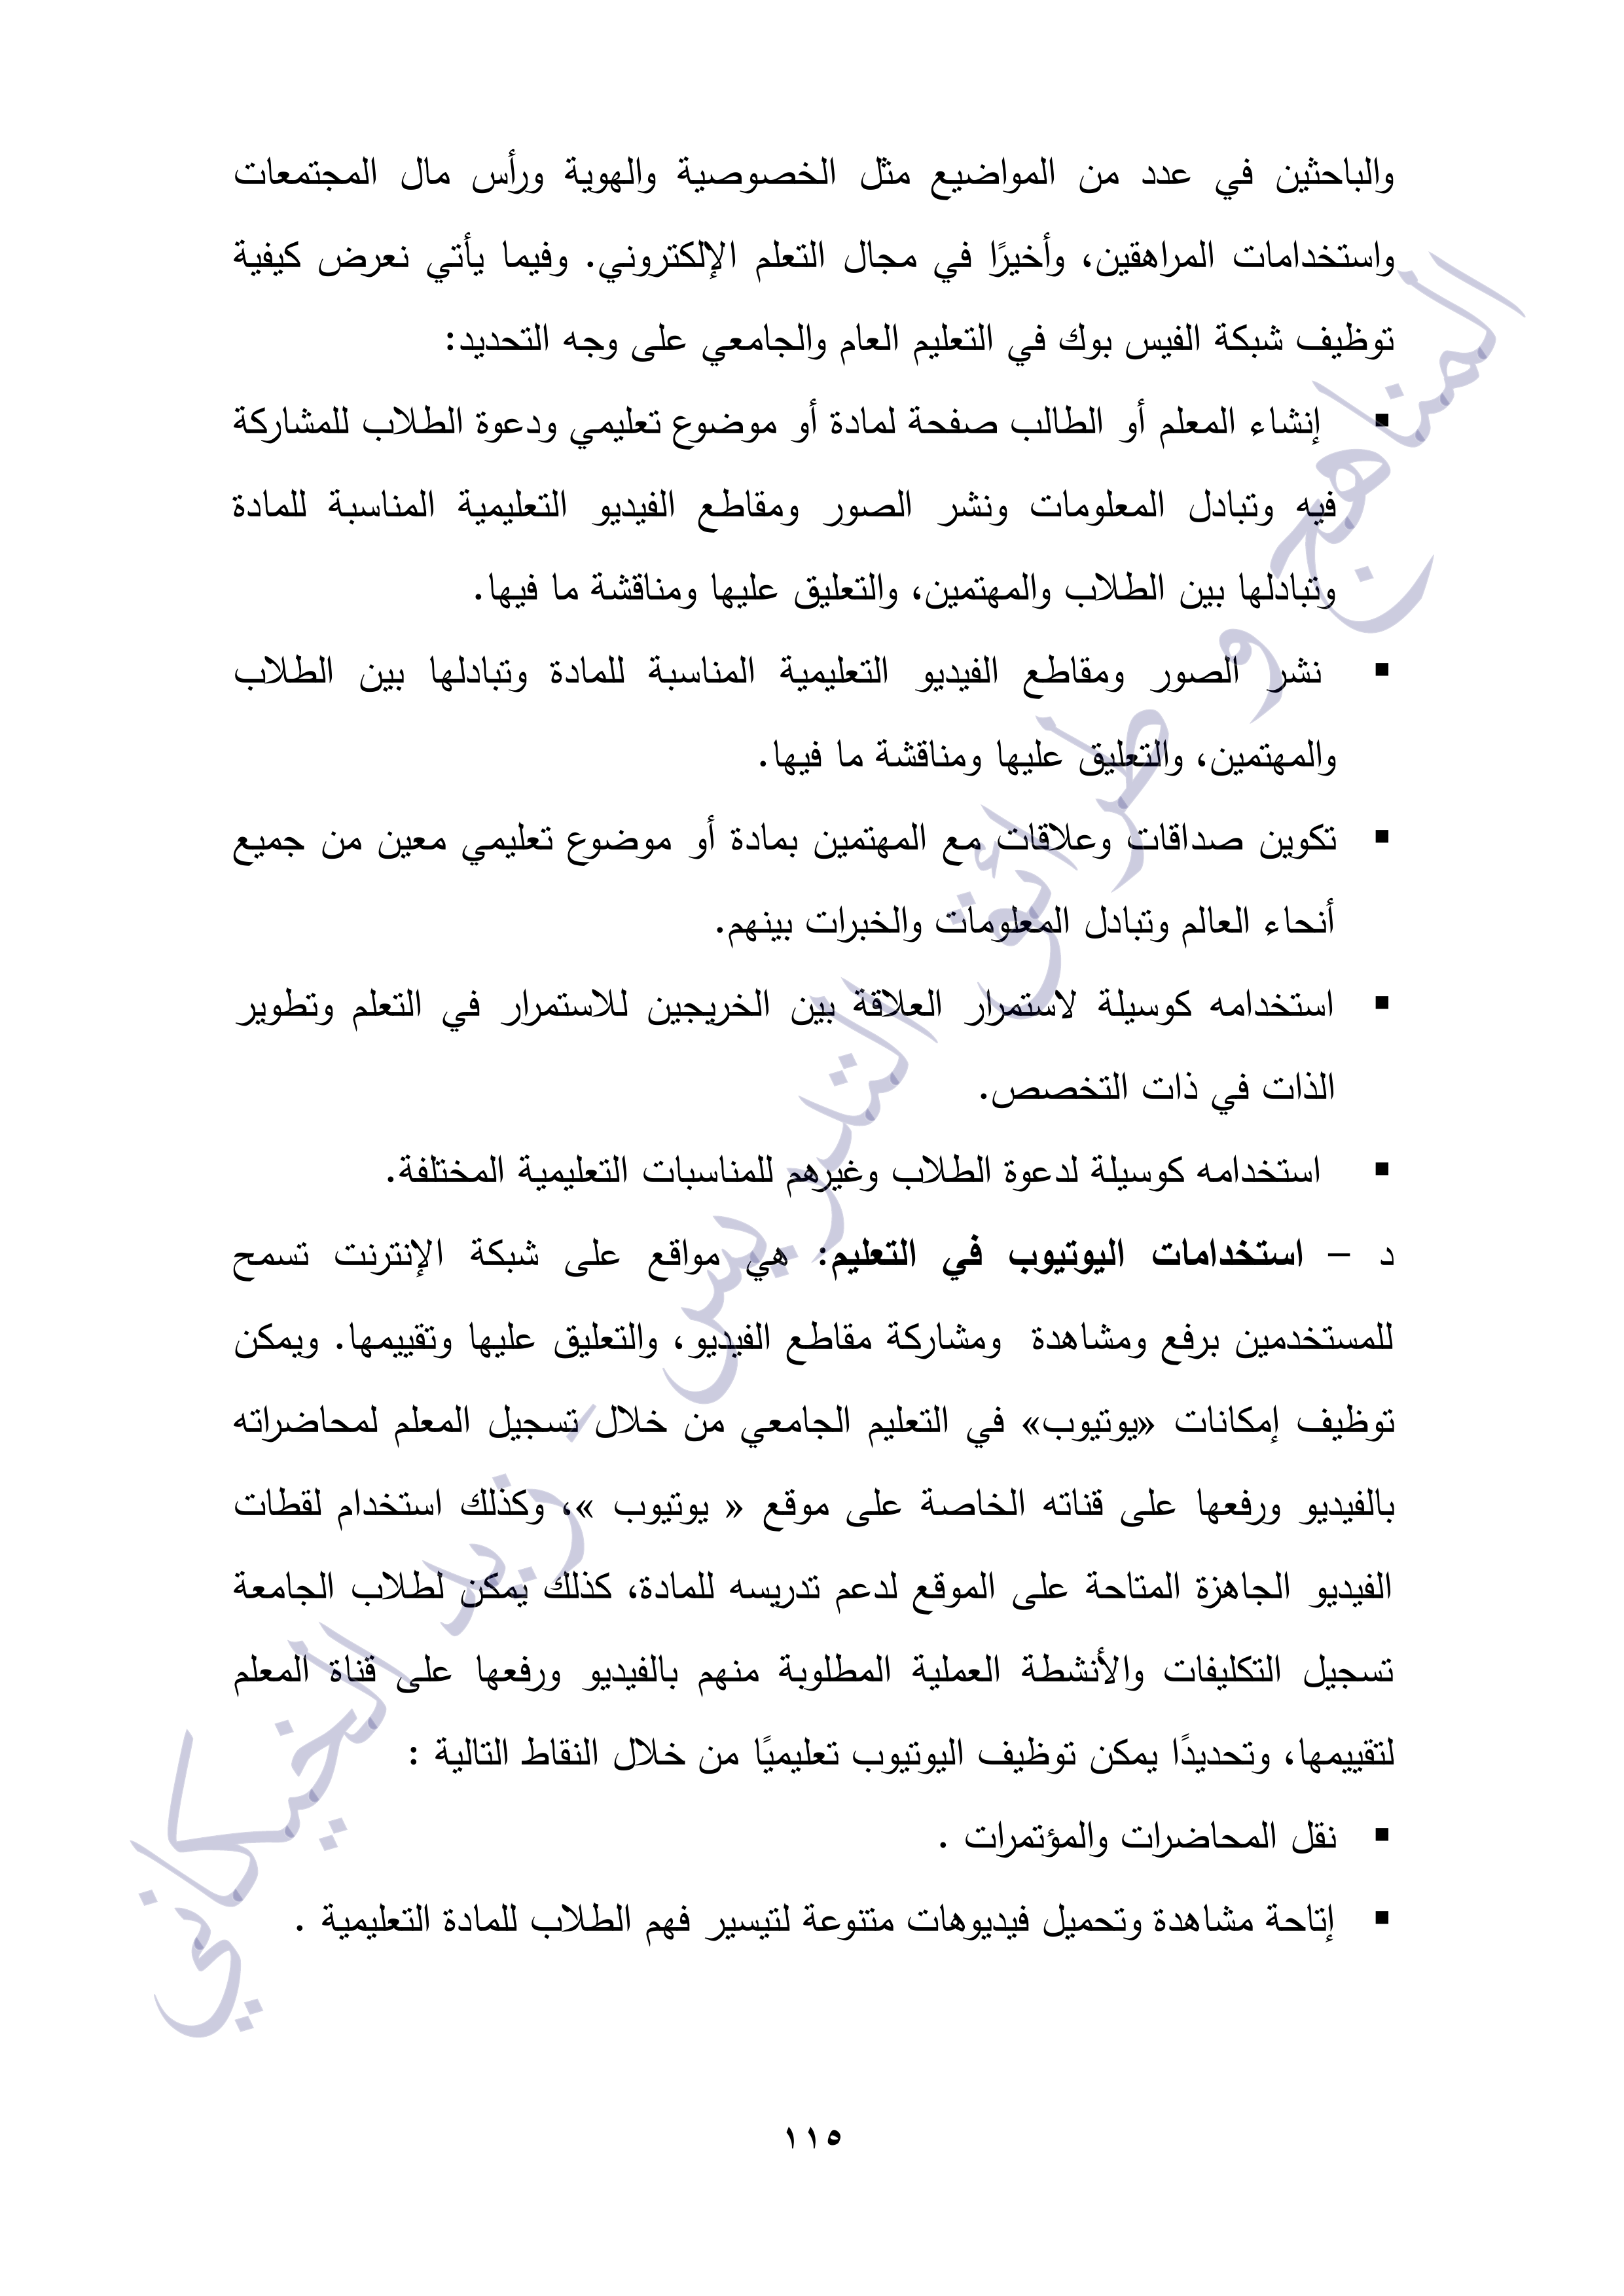 والباحثين في عدد من المواضيع مثل الخصوصية والهوية ورأس مال المجتمعات
واستخدامات المراهقين، وأخيرًا في مجال التعلم الإلكتروني. وفيما يأتي نعرض كيفية
توظيف شبكة الفيس بوك في التعليم العام والجامعي على وجه التحديد:
▪ إنشاء المعلم أو الطالب صفحة لمادة أو موضوع تعليمي ودعوة الطلاب للمشاركة
فيه وتبادل المعلومات ونشر الصور ومقاطع الفيديو التعليمية المناسبة للمادة
وتبادلها بين الطلاب والمهتمين، والتعليق عليها ومناقشة ما فيها.
▪ نشر الصور ومقاطع الفيديو التعليمية المناسبة للمادة وتبادلها بين الطلاب
والمهتمين، والتعليق عليها ومناقشة ما فيها.
▪ تكوين صداقات وعلاقات مع المهتمين بمادة أو موضوع تعليمي معين من جميع
أنحاء العالم وتبادل المعلومات والخبرات بينهم.
▪ استخدامه كوسيلة لاستمرار العلاقة بين الخريجين للاستمرار في التعلم وتطوير
الذات في ذات التخصص.
▪ استخدامه كوسيلة لدعوة الطلاب وغيرهم للمناسبات التعليمية المختلفة.
د – استخدامات اليوتيوب في التعليم: هي مواقع على شبكة الإنترنت تسمح
للمستخدمين برفع ومشاهدة ومشاركة مقاطع الفيديو، والتعليق عليها وتقييمها. ويمكن
توظيف إمكانات «يوتيوب» في التعليم الجامعي من خلال تسجيل المعلم لمحاضراته
بالفيديو ورفعها على قناته الخاصة على موقع « يوتيوب »، وكذلك استخدام لقطات
الفيديو الجاهزة المتاحة على الموقع لدعم تدريسه للمادة، كذلك يمكن لطلاب الجامعة
تسجيل التكليفات والأنشطة العملية المطلوبة منهم بالفيديو ورفعها على قناة المعلم
لتقييمها، وتحديدًا يمكن توظيف اليوتيوب تعليميًا من خلال النقاط التالية :
▪ نقل المحاضرات والمؤتمرات .
▪ إتاحة مشاهدة وتحميل فيديوهات متنوعة لتيسير فهم الطلاب للمادة التعليمية .
١١٥
المناهج و طرائق التدريس - زيد الخيكاني